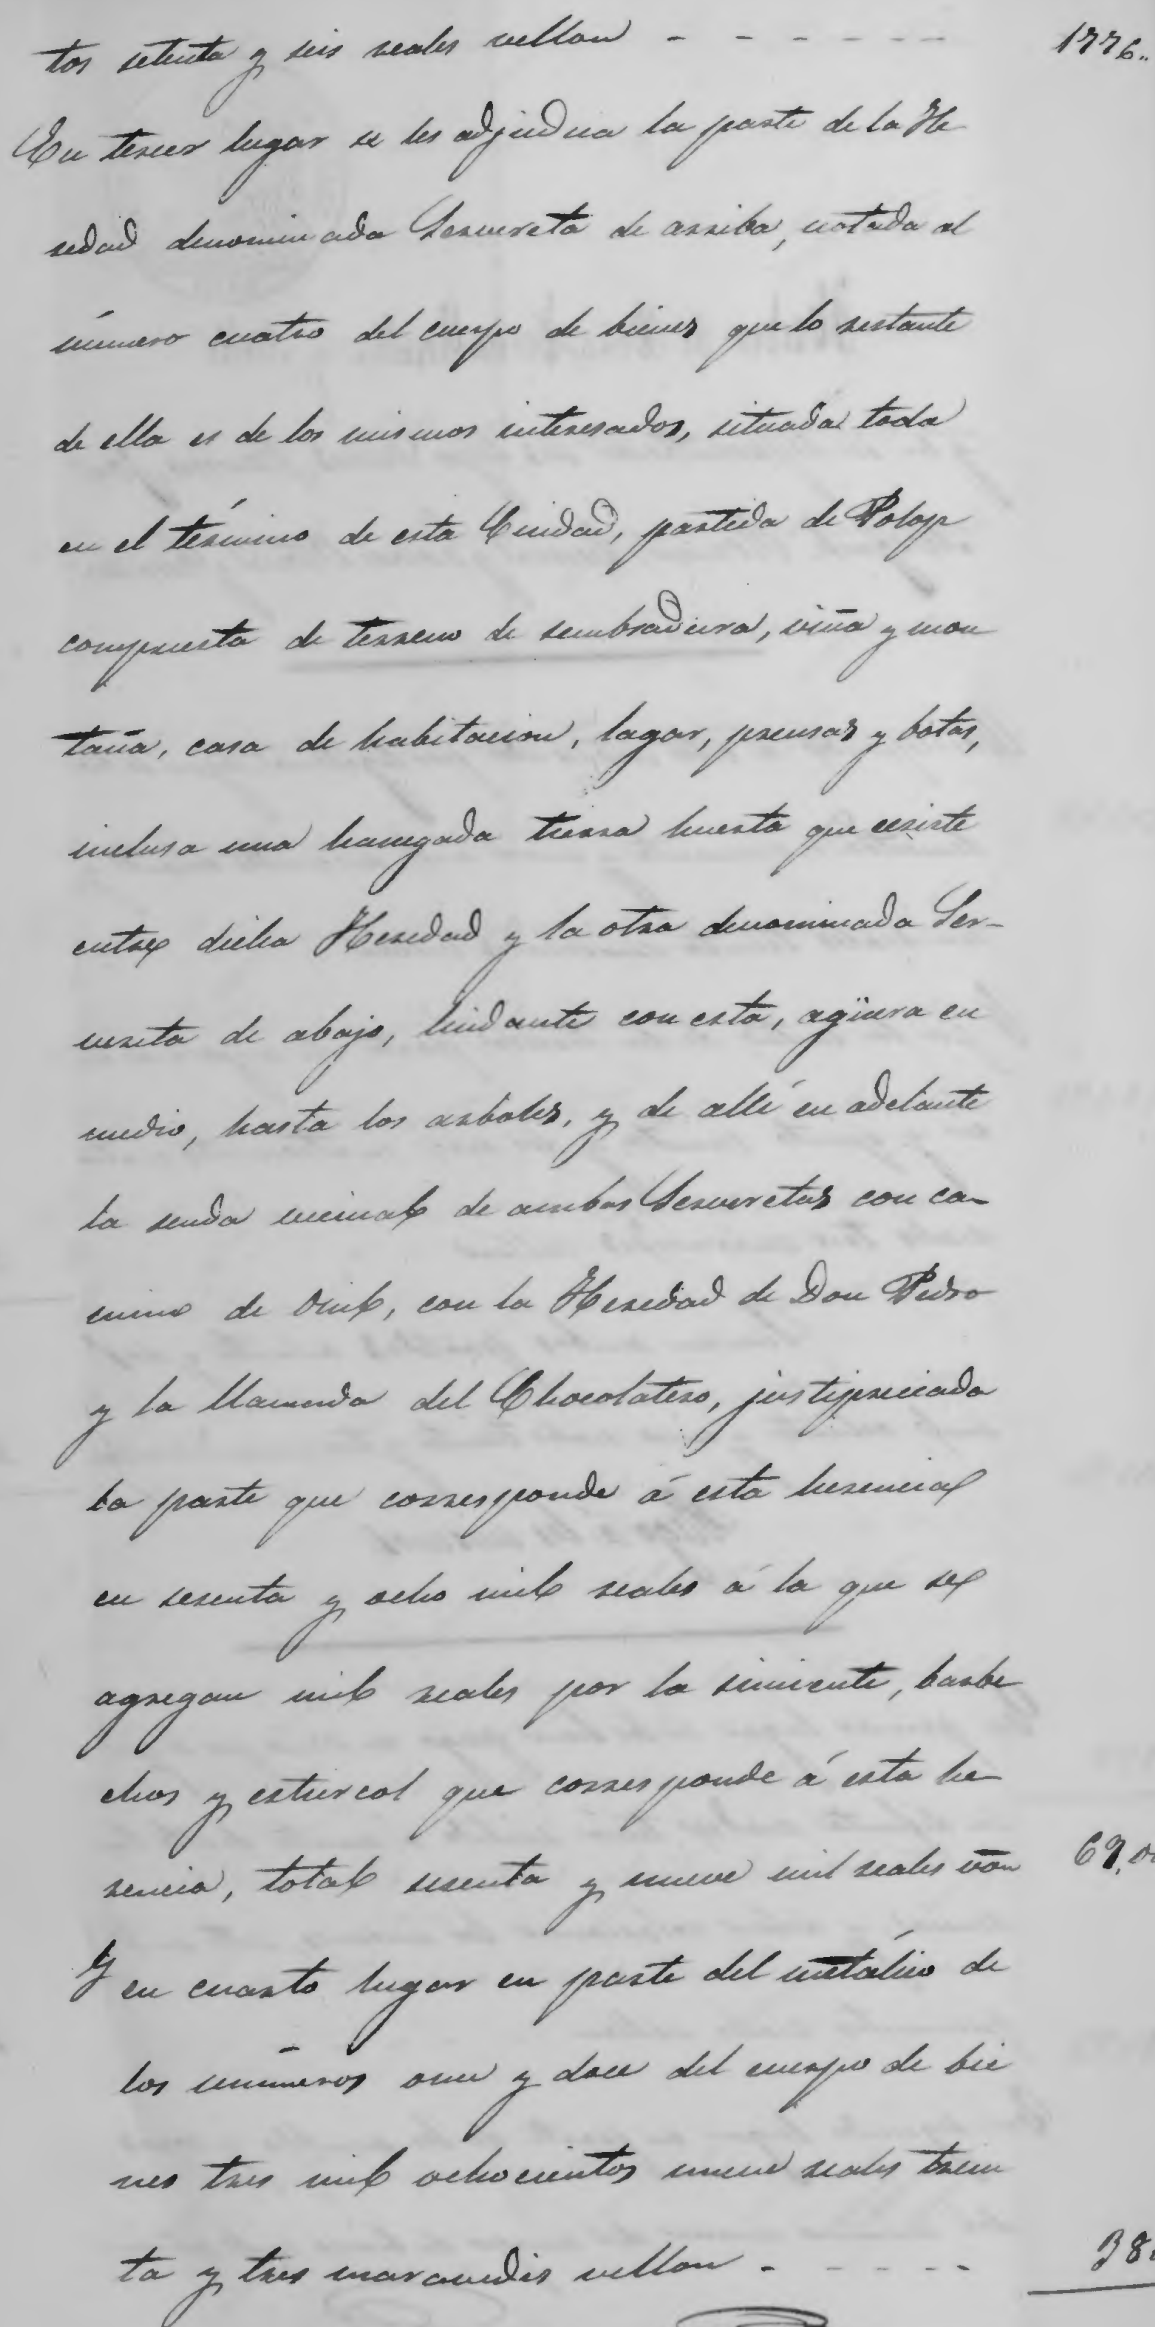 tos setenta y seis reales vellon - - - - - - 1776..
En tercer lugar se les adjudica la parte de la He
redad denominada Serereta de arriba, notada al
número cuatro del cuerpo de bienes que lo restante
de ella es de los mismos interesados, situada toda
en el término de esta Ciudad, partida de Polop
compuesta de terreno de sembradura, viña y mon
taña, casa de habitacion, lagar, prensas y botas,
inclusa una hanegada tierra huerta que ecsiste
entre dicha Heredad y la otra denominada Ser-
vereta de abajo, lindante con esta, agüera en
medio, hasta los arboles, y de allí en adelante
la senda vecinal de ambas Serveretas con ca-
mino de Onil, con la Heredad de Don Pedro
y la llamada del Chocolatero, justipreciada
la parte que corresponde á esta herencia
en sesenta y ocho mil reales á la que se
agregan mil reales por la simiente, barbe
chos y estiercol que corresponde á esta he-
rencia, total sesenta y nueve mil reales von 69,0
Y en cuarto lugar en parte del metálico de
los números once y doce del cuerpo de bie
nes tres mil ochocientos nueve reales trein
ta y tres maravedis vellon - - - - - 38